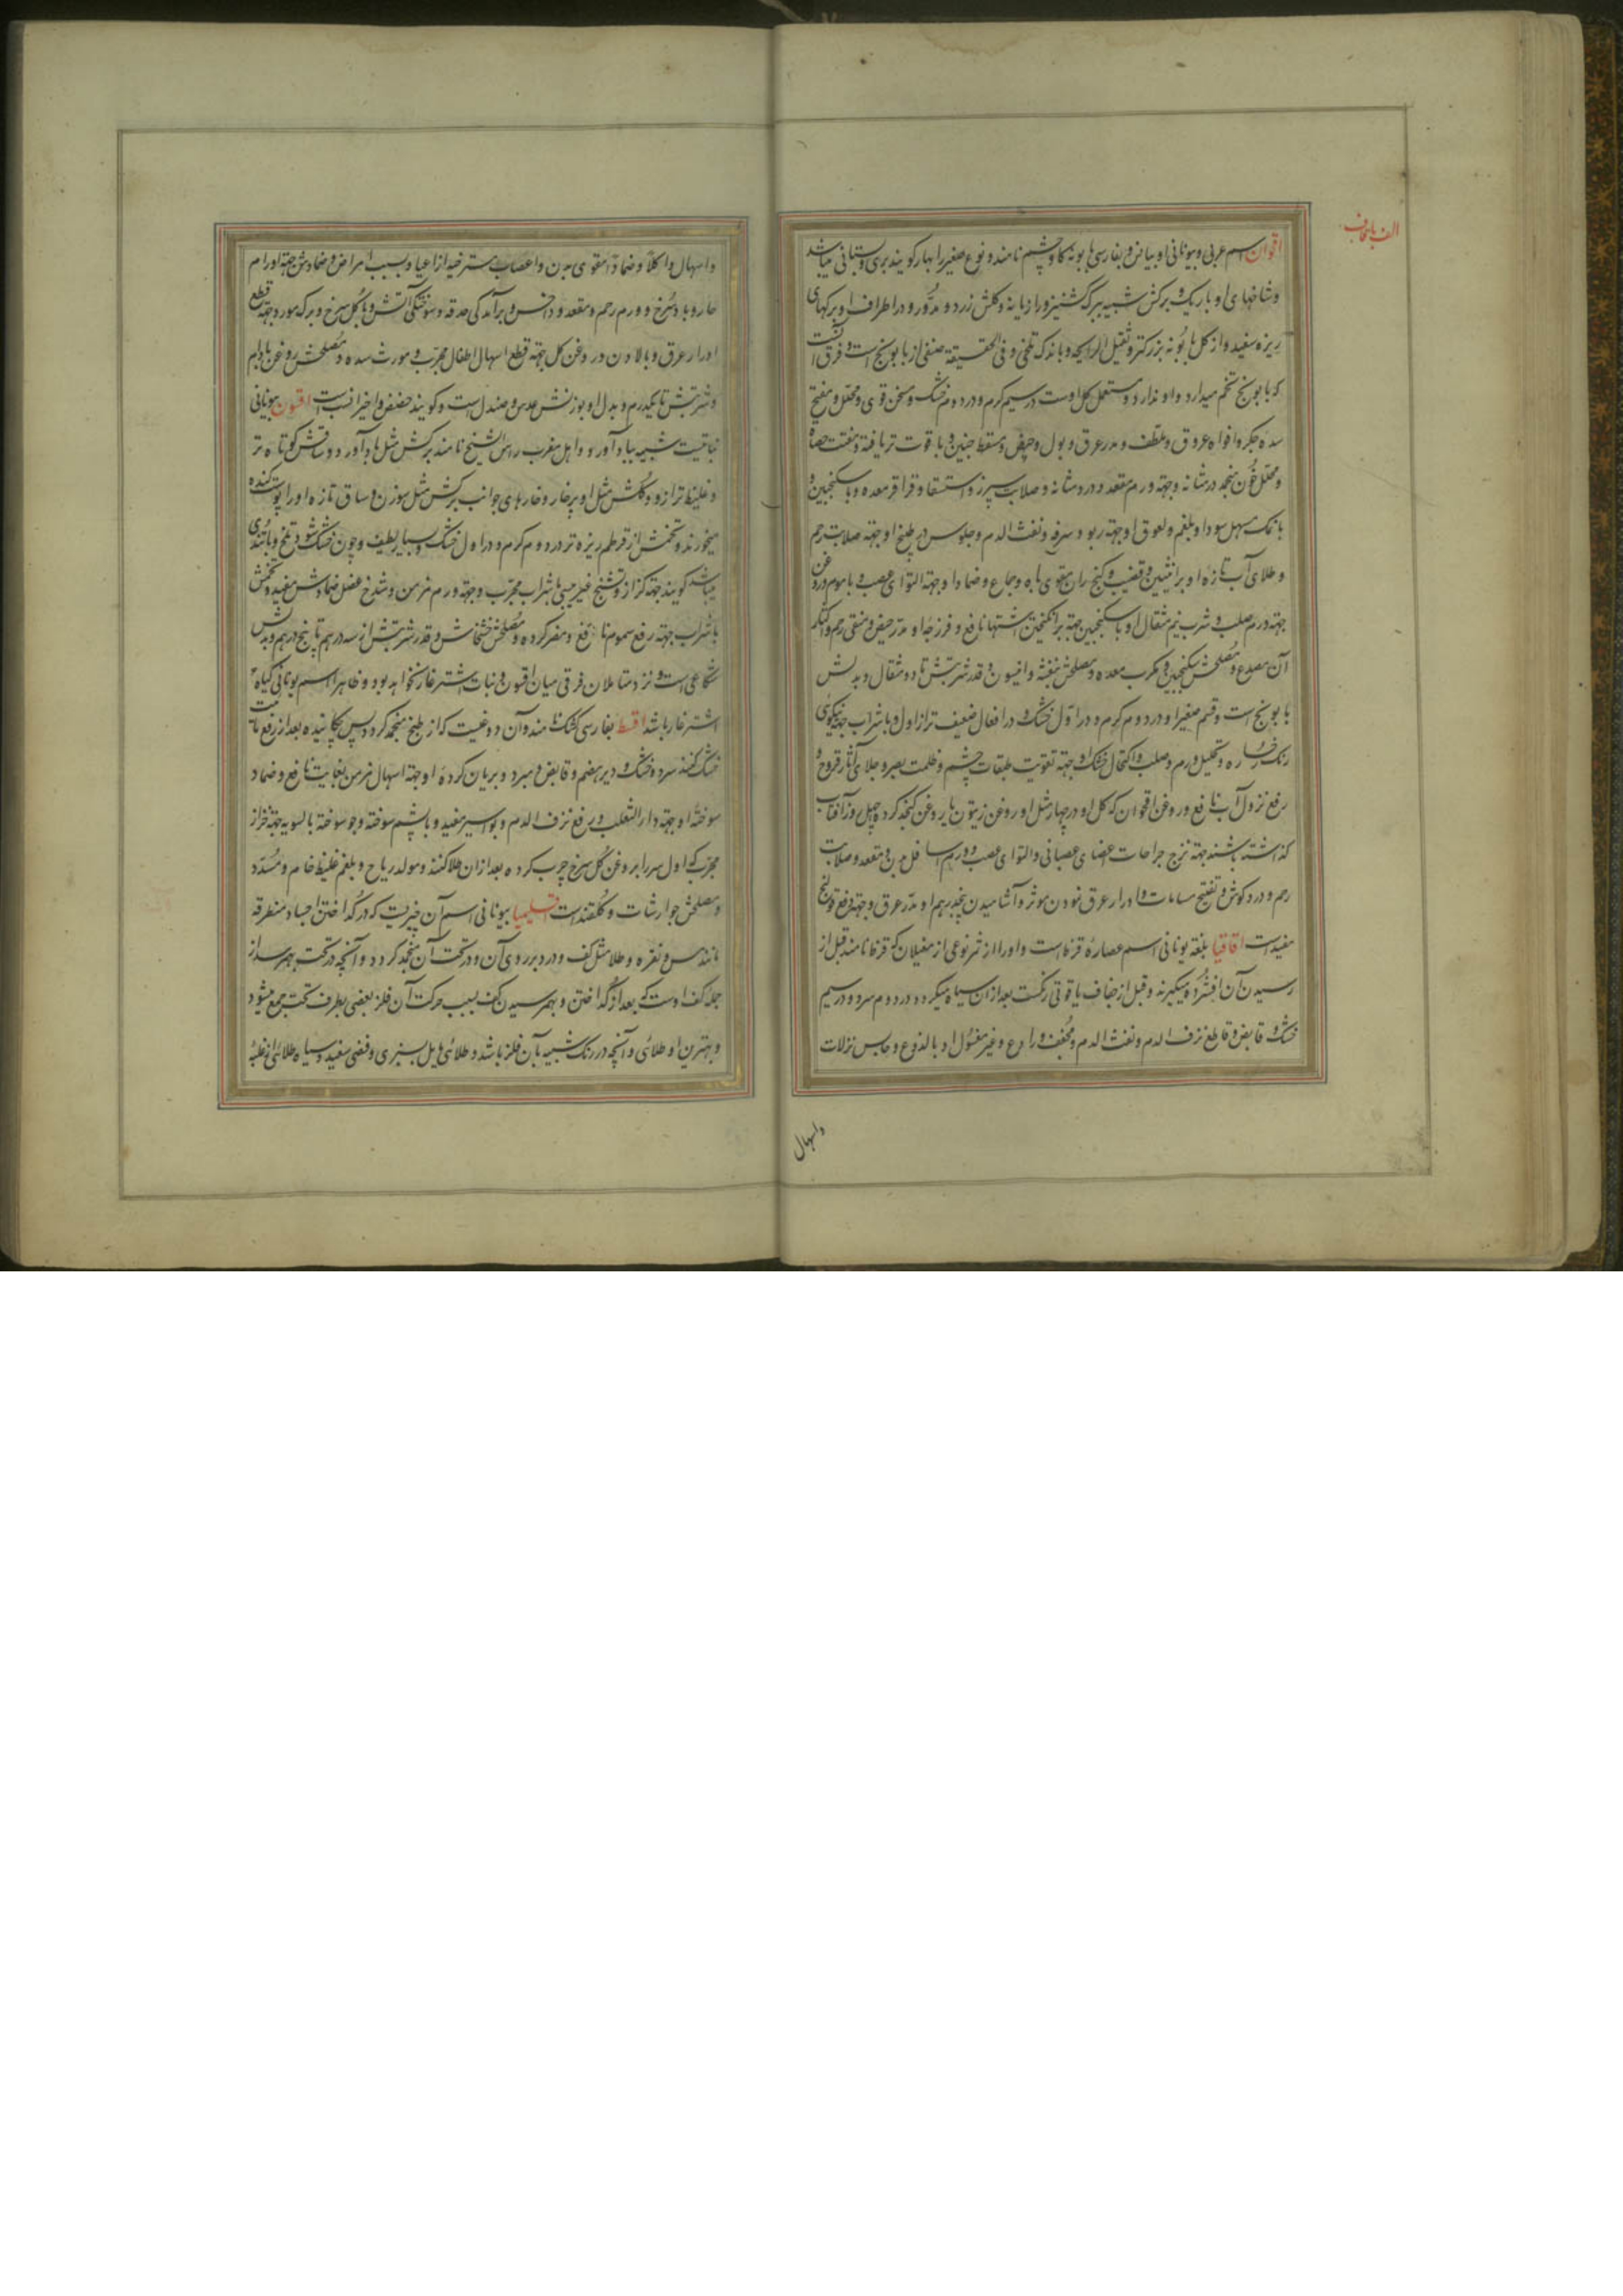 الف با قاف
اقحوان اسم عربی و بیونانی اوبیانن و بفارسی بابونه کاوچشم نامند و نوع صغیر را بهار کویند بری و بستانی میباشد
و شاخهای او باریک و برکش شبیه ببرک کشنیز و رازیانه و کلش زرد و مدور و در اطراف او برکهای
ریزه سفید و از کل بابونه بزرکتر و ثقیل الرایحه و باندک تلخی و فی الحقیقة صنفی از بابونج است و فرق آنست
که بابونج تخم میدارد و او ندارد و مستعمل کل اوست در سیم کرم و در دوم خشک و مسخن قوی و محلل و مفتح
سده جکر و افواه عروق و ملطف و مدر عرق و بول و حیض و مسقط جنین و با قوت تریاقیه و مفتت حصاة
و محلل خون منجمد در مثانه و جهة ورم مقعد و درد مثانه و صلابت سپرز و استسقا و قراقر معده و با سکنجبین و
با نمک مسهل سودا و بلغم و لعوق او جهة ربو و سرفه و نفث الدم و جلوس در طبیخ او جهة صلابت رحم
و طلای آب تازه او بر انثیین و قضیب و کنج ران مقوی باه و جماع و ضمادا و جهة التوای عصب و با موم و روغن
جهة ورم صلب و شرب نیم مثقال او با سکنجبین جهة برانکیختن اشتها نافع و فرزجه او مدر حیض و منقی رحم و اکثار
آن مصدع و مصلحش سکنجبین و مکرب معده و مصلحش بنفشه و انیسون و قدر شربتش تا دو مثقال و بدلش
بابونج است و قسم صغیر او در دوم کرم و در اول خشک و در افعال ضعیف تر از اول و با شراب جهة نیکوی
رنک رخساره و تحلیل ورم صلب و اکتحال خشک او جهة تقویت طبقات چشم و ظلمت بصر و جلای آثار قروح و
رفع نزول آب نافع و روغن اقحوان که کل او در چهار مثل او روغن زیتون یا روغن کنجد کرده چهل روز آفتاب
کذاشته باشند جهة نزج جراحات اعضای عصبانی و التوای عصب و ورم اسافل بدن و مقعد و صلابت
رحم و درد کوش و تفتیح مسامات و ادرار عرق نمودن موثر و آشامیدن پنجدرهم او مدر عرق و جهة رفع قولنج
مفید است اقاقیا بلغة یونانی اسم عصاره قرظ است و او را از ثمر نوعی از مغیلان که قرظ نامند قبل از
رسیدن آن افشرده میکیرند و قبل از جفاف یاقوتی رنکست بعد از آن سیاه میکردد در دوم سرد و در سیم
خشک و قابض و قاطع نزف الدم و نفث الدم و مجفف و رادع و غیر مغسول او با لذوع و حابس نزلات
واسهال
و اسهال و اکلا و ضمادا مقوی بدن و اعصاب مسترخیه از اعیا و بسبب امراض و ضمادش جهة اورام
حاره و باد سرخ و ورم رحم و مقعد و داخس و برآمدکی حدقه و سوختکی آتش و با کل سرخ و برک مورد جهة قطع
ادرار عرق و با لادن در روغن کل جهة قطع اسهال اطفال مجرب و مورث سده و مصلحش روغن بادام
و شربتش تا یکدرم و بدل او بوزنش عدس و صندل است و کویند حضض و اخیر انسب است اقسون بیونانی
نباتیست شبیه بباد آورد و اهل مغرب راس الشیخ نامند برکش مثل باد آورد و ساقش کوتاه تر
و غلیظ تر از او و کلش مثل او پرخار و خارهای جوانب برکش مثل سوزن و ساق تازه او را پوست کنده
میخورند و تخمش از قرطم ریزه تر در دوم کرم و در اول خشک و بسیار لطیف و چون خشک شود تلخ و با تندی
میباشد کویند جهة کزاز و تشنج غیر یبسی با شراب مجرب و جهة ورم مزمن و شدخ عضل ضمادش مفید و تخمش
با شراب جهة رفع سموم نافع و مضر کرده و مصلحش خشخاش و قدر شربتش از سه درهم تا پنج درهم و بدلش
شکاعی است و نزد متاملان فرقی میان اقسون و نبات اشترغار نخواهد بود و ظاهرا اسم یونانی کیاه
اشترغار باشد اقط بفارسی کشک نامند و آن دوغیست که از طبخ منجمد کردد پس چکانیده بعد از رفع مائیت
خشک کنند سرد و خشک و دیر هضم و قابض و مبرد و بریان کرده او جهة اسهال مزمن بغایت نافع و ضماد
سوخته او جهة داء الثعلب و رفع نزف الدم و بواسیر مفید و با پشم سوخته و جو سوخته بالسویه جهة خزاز
مجرب که اول سر را بروغن کل سرخ چرب کرده بعد از آن طلا کنند و مولد ریاح و بلغم غلیظ خام و مسدد
و مصلحش جوارشات و کلقند است اقلیمیا بیونانی اسم آن چیزیست که در کداختن اجساد منطرقه
مانند مس و نقره و طلا مثل کف و درد بر روی آن و در تحت آن منجمد کردد و آنچه در تحت بهم رسد از
جمله کف اوست که بعد از کداختن و بهم رسیدن کف بسبب حرکت آن فلز بعضی بطرف تحت جمع میشود
و بهترین او طلائی و آنچه در رنک شبیه بآن فلز باشد و طلائی مایل بسبزی و فضی سفید و سیاه طلائی از غلبه